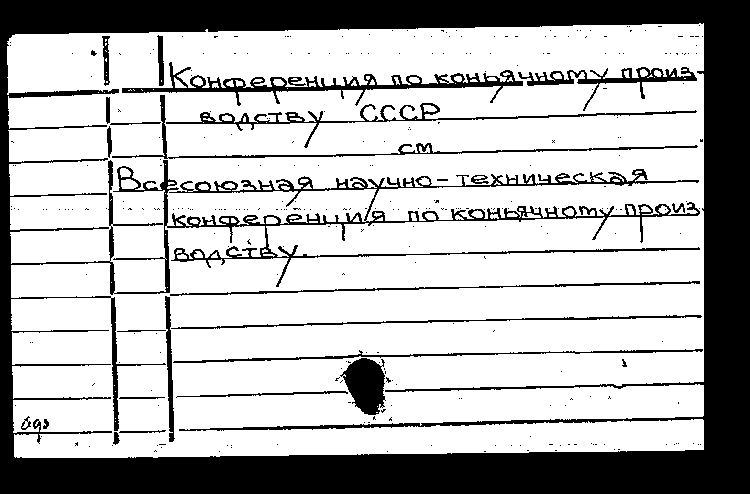 Конференция по коньячному произ-
водству СССР
см.
Всесоюзная научно-техническая
конференция по коньячному произ-
водству.